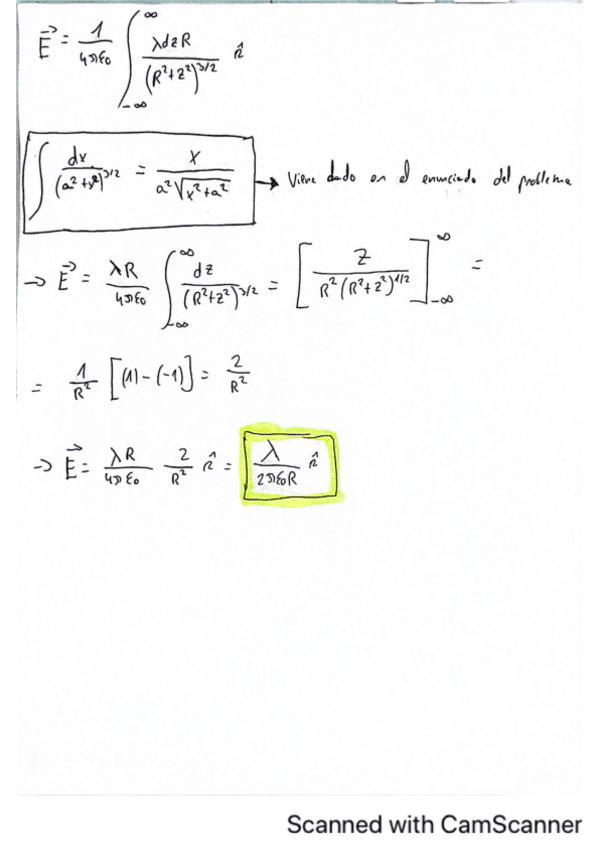 E⃗ = 1/(4πε₀) ∫_{-∞}^{∞} λdzR/(R²+z²)^{3/2} r̂
∫ dx/(a²+x²)^{3/2} = x/(a²√(x²+a²)) → Viene dado en el enunciado del problema
→ E⃗ = λR/(4πε₀) ∫_{-∞}^{∞} dz/(R²+z²)^{3/2} = [z/(R²(R²+z²)^{1/2})]_{-∞}^{∞} =
= 1/R² [(1)-(-1)] = 2/R²
→ E⃗ = λR/(4πε₀) 2/R² r̂ = λ/(2πε₀R) r̂
Scanned with CamScanner